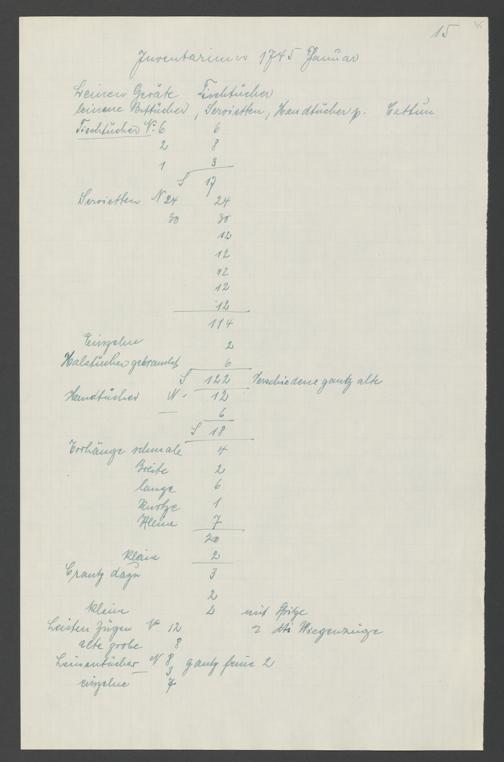 15
Inventarium 1745 Januar
Leinen Geräte Tischtücher
leinene Betttücher, Servietten, Handtücher p. Cattun
Tischtücher N: 6 6
2 8
1 3
S 17
Servietten N 24 24
30 30
12
12
12
12
12
114
Einzelne 2
Halstücher gebraucht 6
S 122 Verschiedene gantz alte
Handtücher N - 12
6
S 18
Vorhänge schmale 4
Breite 2
lange 6
Kurtze 1
Kleine 7
20
kleine 2
Crantz dazu 3
2
kleine 2 mit Spitze
Leisten Zügen N 12 2 dto Wiegenzüge
alte grobe 8
Leinentücher N 8 gantz feine 2
3
einzelne 7